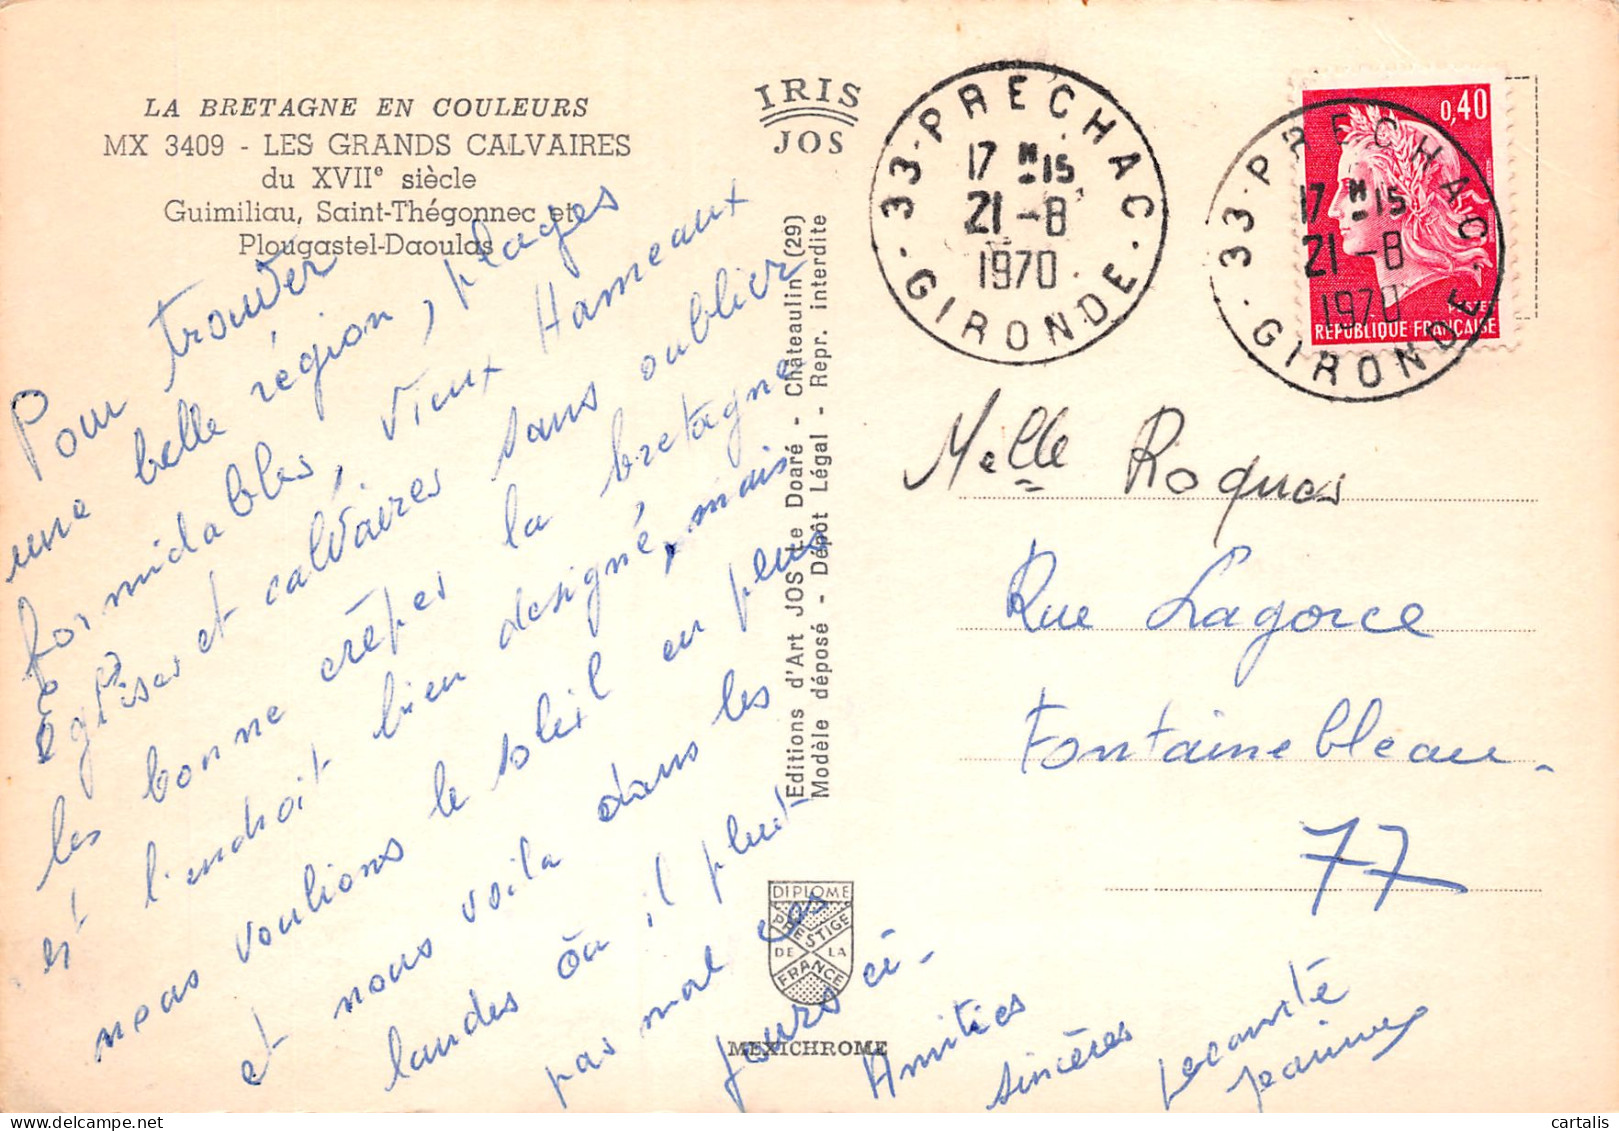 LA BRETAGNE EN COULEURS
MX 3409 - LES GRANDS CALVAIRES
du XVIIe siècle
Guimiliau, Saint-Thégonnec et
Plougastel-Daoulas
Pour trouver
une belle région, plages
formidables, vieux Hameaux
églises et calvaires sans oublier
les bonne crêpes la bretagne
est l'endroit bien designé, mais
nous voulions le soleil en plus
et nous voila dans les
landes où il pleut
pas mal ces
jours ci.
Amitiés
sincères
Jeannine
IRIS
JOS
Editions d'Art JOS Le Doaré - Châteaulin (29)
Modèle déposé - Dépôt Légal - Repr. interdite
DIPLOME
PRESTIGE
DE LA
FRANCE
MEXICHROME
33 - PRECHAC -
17 H -15
21 -8
1970
GIRONDE
0,40
REPUBLIQUE FRANÇAISE
33 - PRECHAC -
17 H -15
21 -8
1970
GIRONDE
Melle Roques
Rue Lagorce
Fontainebleau.
77
cartalis